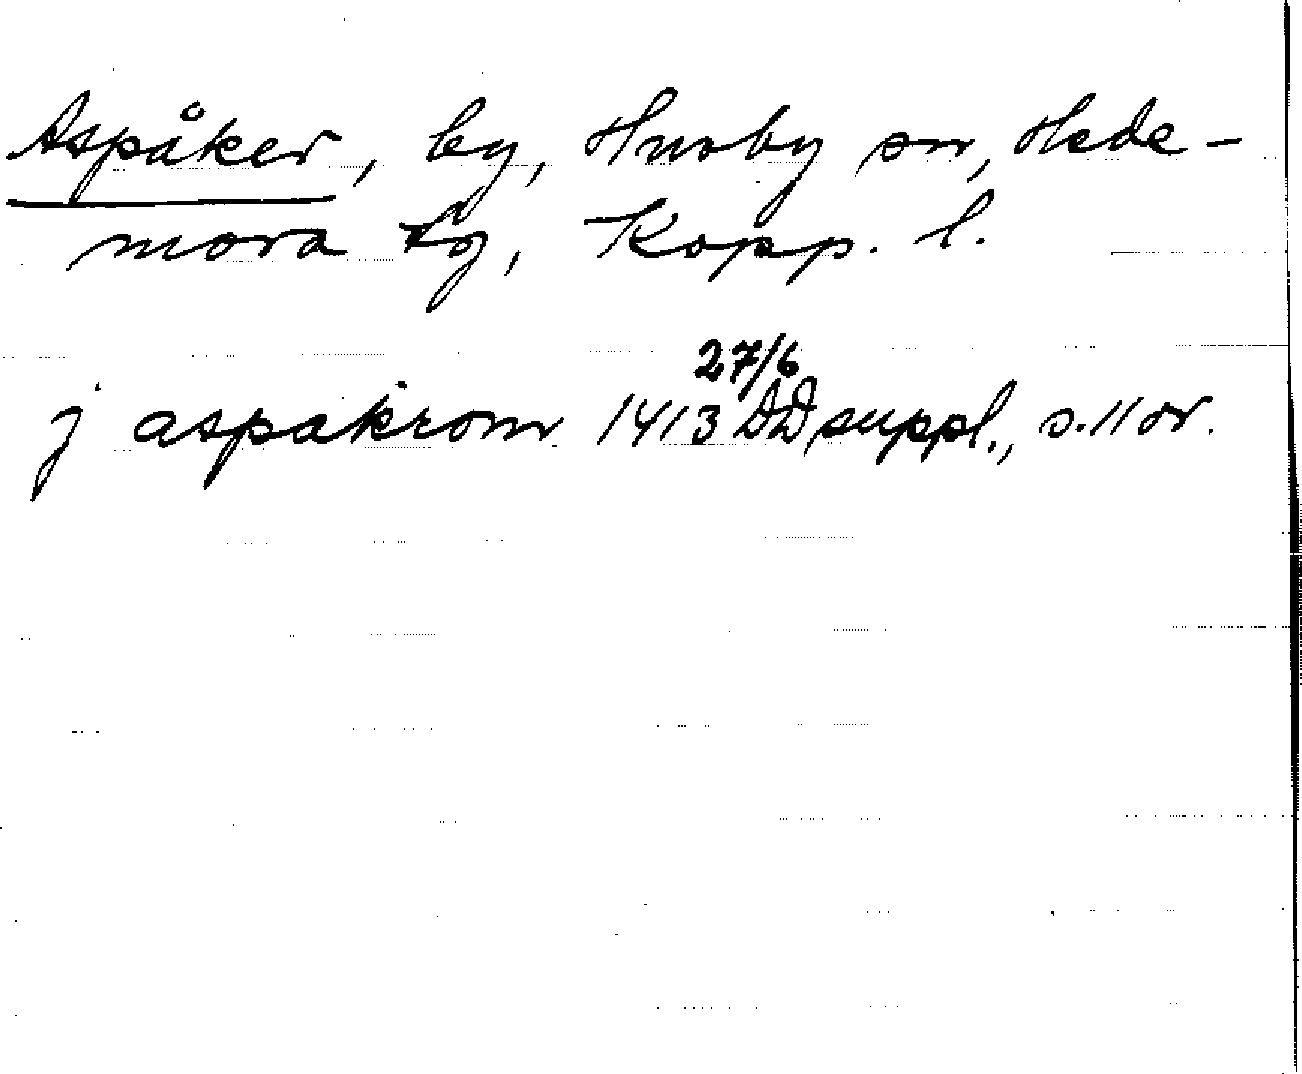 Aspåker, by, Husby sn, Hede-
mora tg, Kopp. l.
j aspakrom 1413 27/6 DD suppl., s. 11 or.